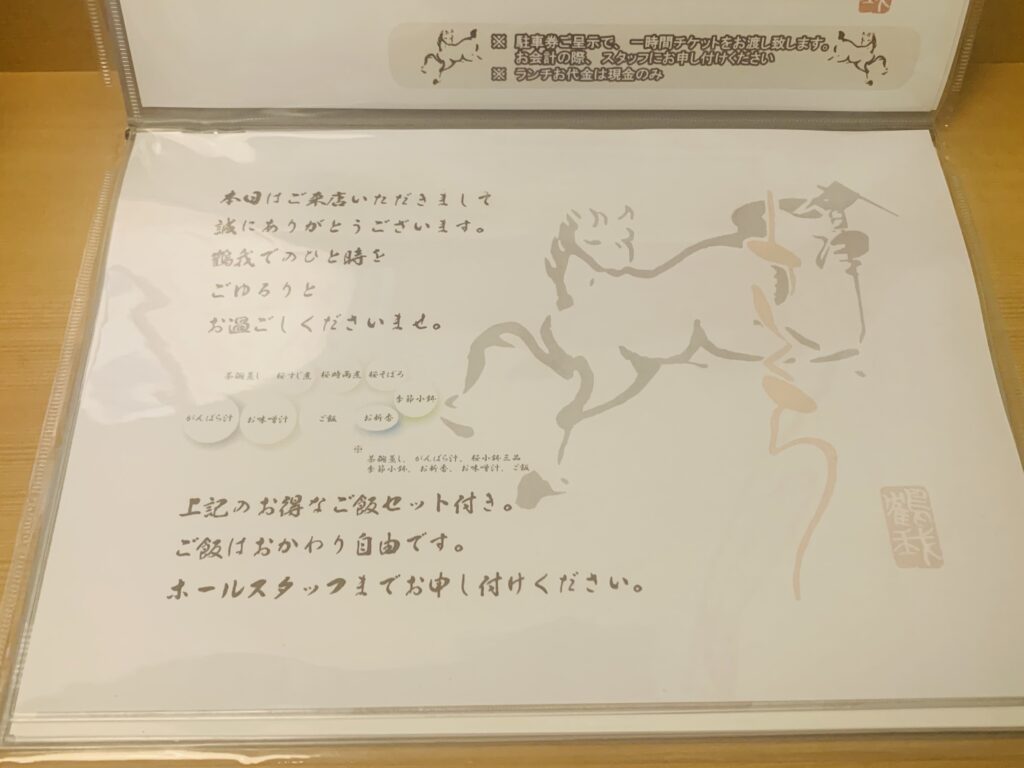 ※ 駐車券ご呈示で、一時間チケットをお渡し致します。
お会計の際、スタッフにお申し付けください
※ ランチお代金は現金のみ
本日はご来店いただきまして
誠にありがとうございます。
鶴我でのひと時を
ごゆるりと
お過ごしくださいませ。
會津
さくら
茶碗蒸し 桜すじ煮 桜時雨煮 桜そぼろ
季節小鉢
がんばら汁 お味噌汁 ご飯 お新香
※
茶碗蒸し、がんばら汁、桜小鉢三品
季節小鉢、お新香、お味噌汁、ご飯
上記のお得なご飯セット付き。
ご飯はおかわり自由です。
ホールスタッフまでお申し付けください。
鶴我